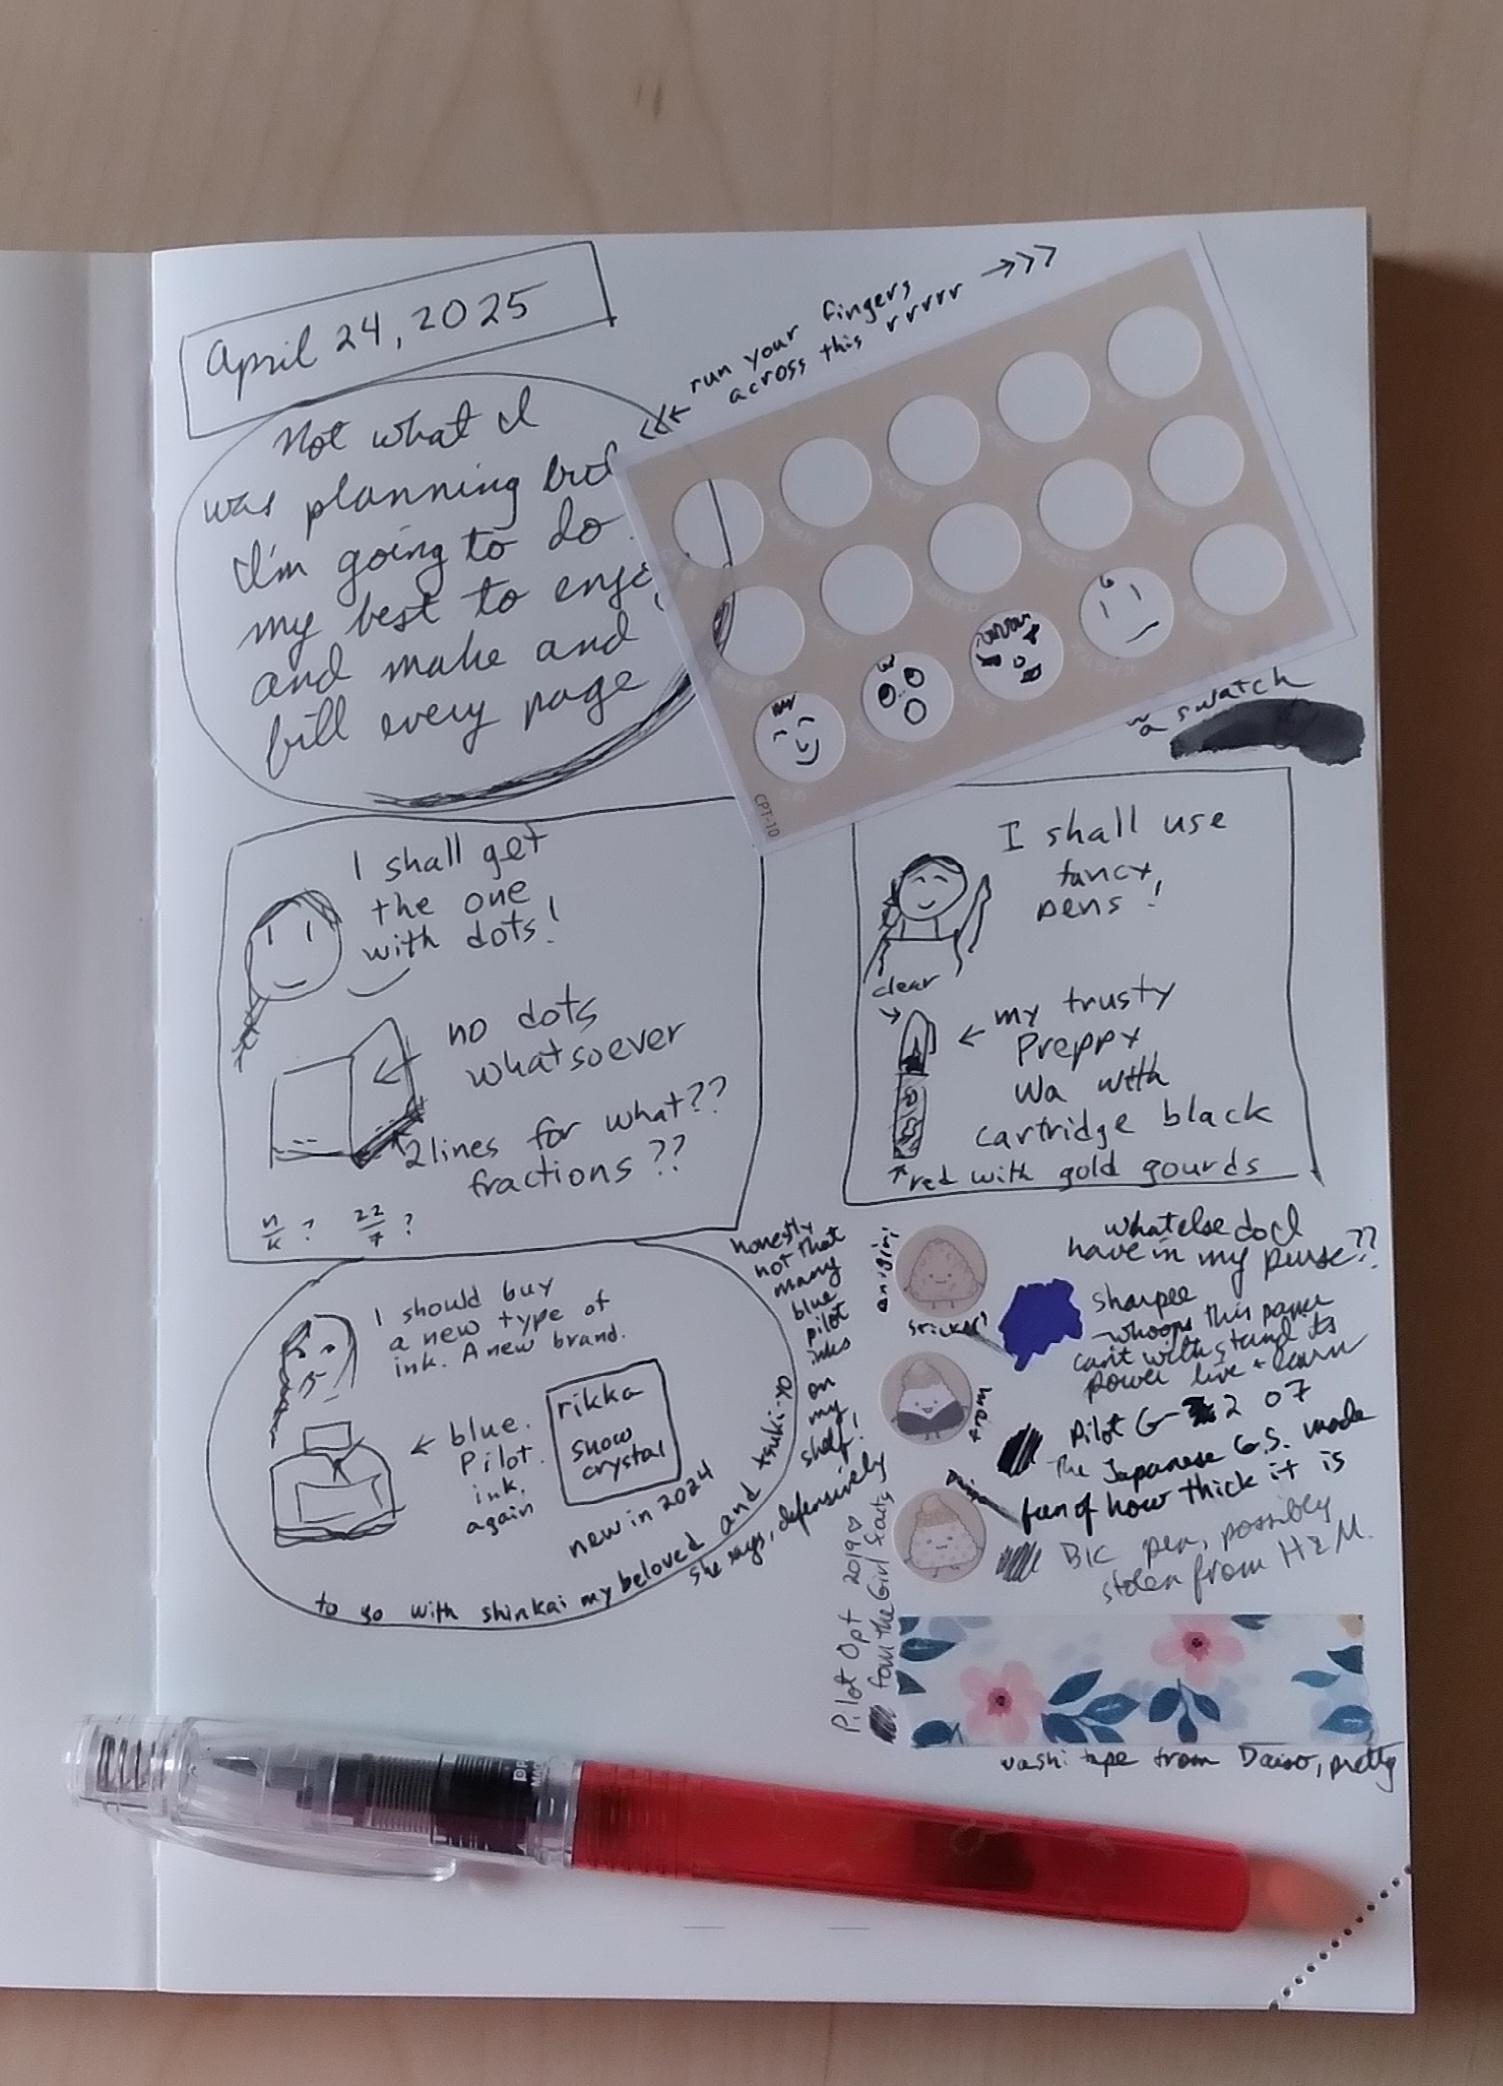 April 24, 2025
Not what I
was planning but
I'm going to do
my best to enjo
and make and
fill every page
<<← run your fingers
across this rrrrr →>>>
CPT-10
a swatch
I shall get
the one
with dots!
no dots
whatsoever
2 lines for what??
fractions??
n/k ? 22/7 ?
I shall use
fancy
pens!
clear
my trusty
Preppy
Wa with
cartridge black
red with gold gourds
I should buy
a new type of
ink. A new brand.
blue.
Pilot.
ink.
again
rikka
snow
crystal
new in 2024
to go with shinkai my beloved and tsuki-yo
honestly
not that
many
blue
pilot
inks
on
my
shelf!
she says, defensively
what else do I
have in my purse??
onigiri
stickers
sharpee
-whoops this paper
can't withstand its
power live + learn
Pilot G-2 07
The Japanese G.S. made
fun of how thick it is
BIC pen, possibly
stolen from H&M.
Pilot Opt 2019 ♡
from the Girl Scouts
washi tape from Daiso, pretty